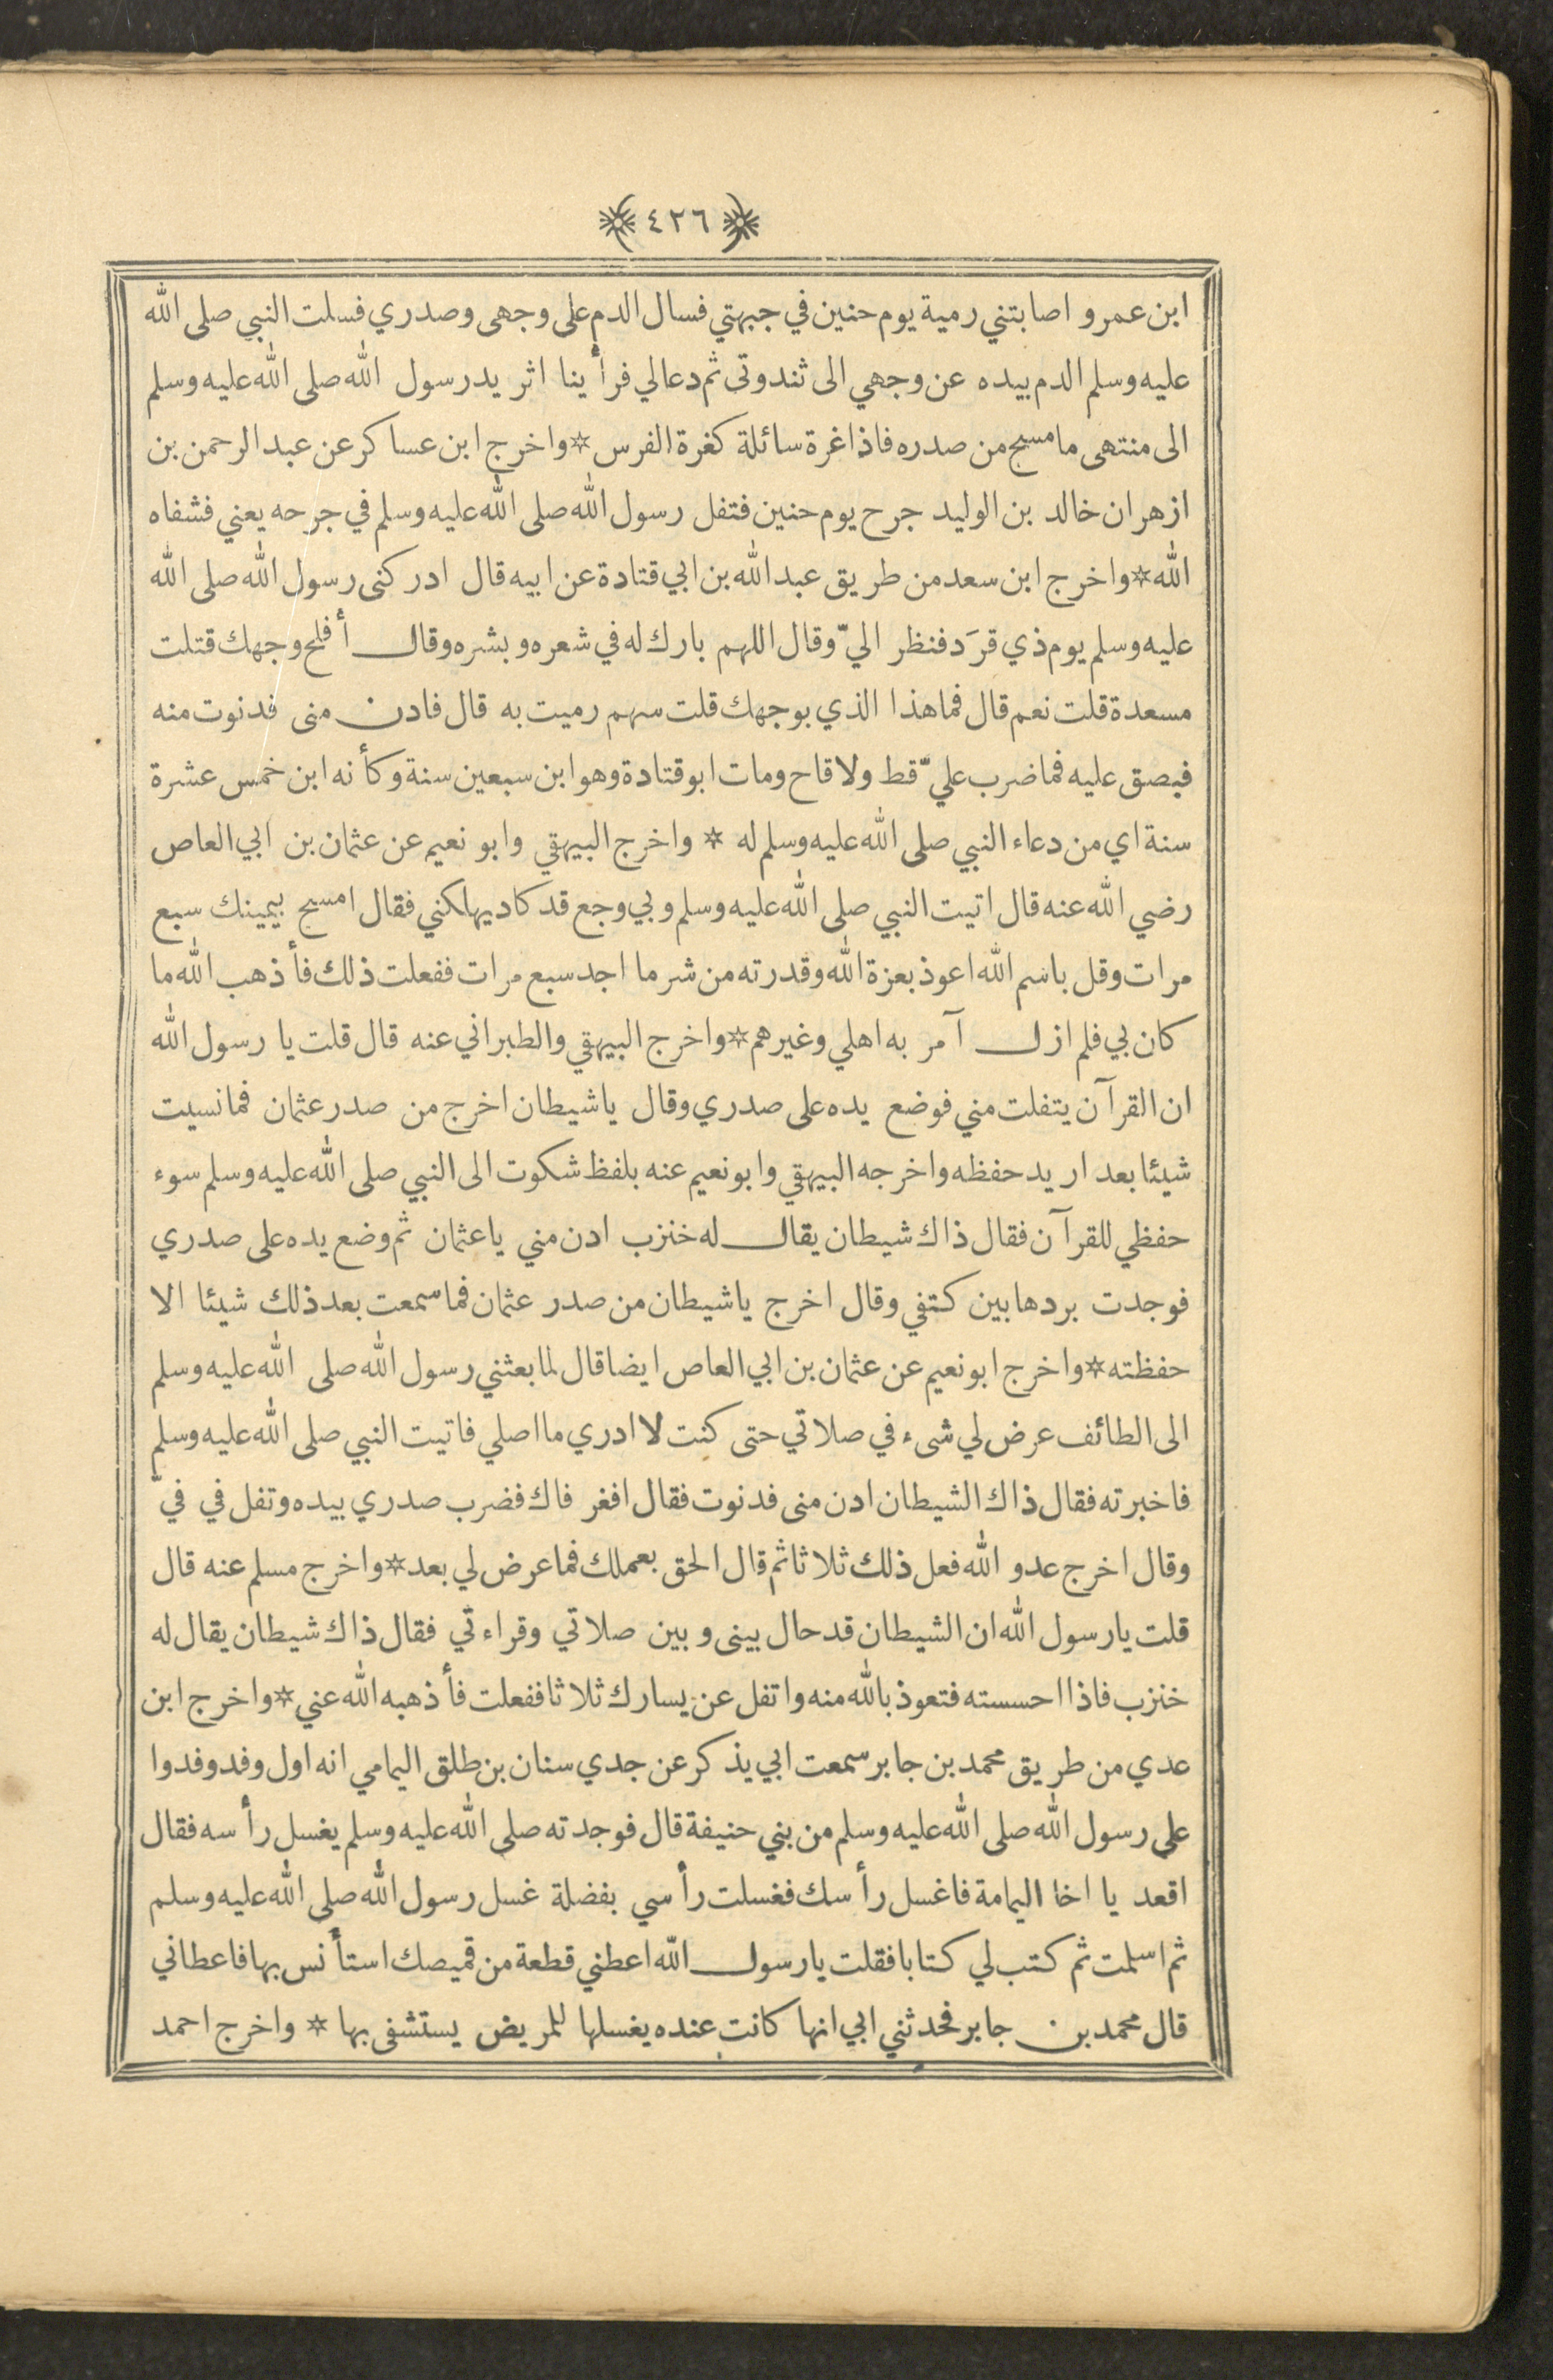 ﴿٤٢٦﴾
ابن عمرو اصابتني رمية يوم حنين في جبهتي فسال الدم على وجهى وصدري فسلت النبي صلى الله
عليه وسلم الدم بيده عن وجهي الى ثندوتى ثم دعا لي فرأينا اثر يد رسول الله صلى الله عليه وسلم
الى منتهى ما مسح من صدره فاذا غرة سائلة كغرة الفرس * واخرج ابن عساكر عن عبد الرحمن بن
ازهر ان خالد بن الوليد جرح يوم حنين فتفل رسول الله صلى الله عليه وسلم في جرحه يعني فشفاه
الله * واخرج ابن سعد من طريق عبد الله بن ابي قتادة عن ابيه قال ادركنى رسول الله صلى الله
عليه وسلم يوم ذي قرَد فنظر اليّ وقال اللهم بارك له في شعره وبشره وقال أفلح وجهك قتلت
مسعدة قلت نعم قال فما هذا الذي بوجهك قلت سهم رميت به قال فادن منى فدنوت منه
فبصق عليه فما ضرب عليّ قط ولا قاح ومات ابو قتادة وهو ابن سبعين سنة وكأنه ابن خمس عشرة
سنة اي من دعاء النبي صلى الله عليه وسلم له * واخرج البيهقي وابو نعيم عن عثمان بن ابي العاص
رضي الله عنه قال اتيت النبي صلى الله عليه وسلم وبي وجع قد كاد يهلكني فقال امسح بيمينك سبع
مرات وقل باسم الله اعوذ بعزة الله وقدرته من شر ما اجد سبع مرات ففعلت ذلك فأذهب الله ما
كان بي فلم ازل آمر به اهلي وغيرهم * واخرج البيهقي والطبراني عنه قال قلت يا رسول الله
ان القرآن يتفلت مني فوضع يده على صدري وقال يا شيطان اخرج من صدر عثمان فما نسيت
شيئا بعد اريد حفظه واخرجه البيهقي وابو نعيم عنه بلفظ شكوت الى النبي صلى الله عليه وسلم سوء
حفظي للقرآن فقال ذاك شيطان يقال له خنزب ادن مني يا عثمان ثم وضع يده على صدري
فوجدت بردها بين كتفي وقال اخرج يا شيطان من صدر عثمان فما سمعت بعد ذلك شيئا الا
حفظته * واخرج ابو نعيم عن عثمان بن ابي العاص ايضا قال لما بعثني رسول الله صلى الله عليه وسلم
الى الطائف عرض لي شىء في صلاتي حتى كنت لا ادري ما اصلي فاتيت النبي صلى الله عليه وسلم
فاخبرته فقال ذاك الشيطان ادن منى فدنوت فقال افغر فاك فضرب صدري بيده وتفل في فيّ
وقال اخرج عدو الله فعل ذلك ثلاثا ثم قال الحق بعملك فما عرض لي بعد * واخرج مسلم عنه قال
قلت يا رسول الله ان الشيطان قد حال بينى وبين صلاتي وقراءتي فقال ذاك شيطان يقال له
خنزب فاذا احسسته فتعوذ بالله منه واتفل عن يسارك ثلاثا ففعلت فأذهبه الله عني * واخرج ابن
عدي من طريق محمد بن جابر سمعت ابي يذكر عن جدي سنان بن طلق اليمامي انه اول وفد وفدوا
على رسول الله صلى الله عليه وسلم من بني حنيفة قال فوجدته صلى الله عليه وسلم يغسل رأسه فقال
اقعد يا اخا اليمامة فاغسل رأسك فغسلت رأسي بفضلة غسل رسول الله صلى الله عليه وسلم
ثم اسلمت ثم كتب لي كتابا فقلت يا رسول الله اعطني قطعة من قميصك استأنس بها فاعطاني
قال محمد بن جابر فحدثني ابي انها كانت عنده يغسلها للمريض يستشفى بها * واخرج احمد